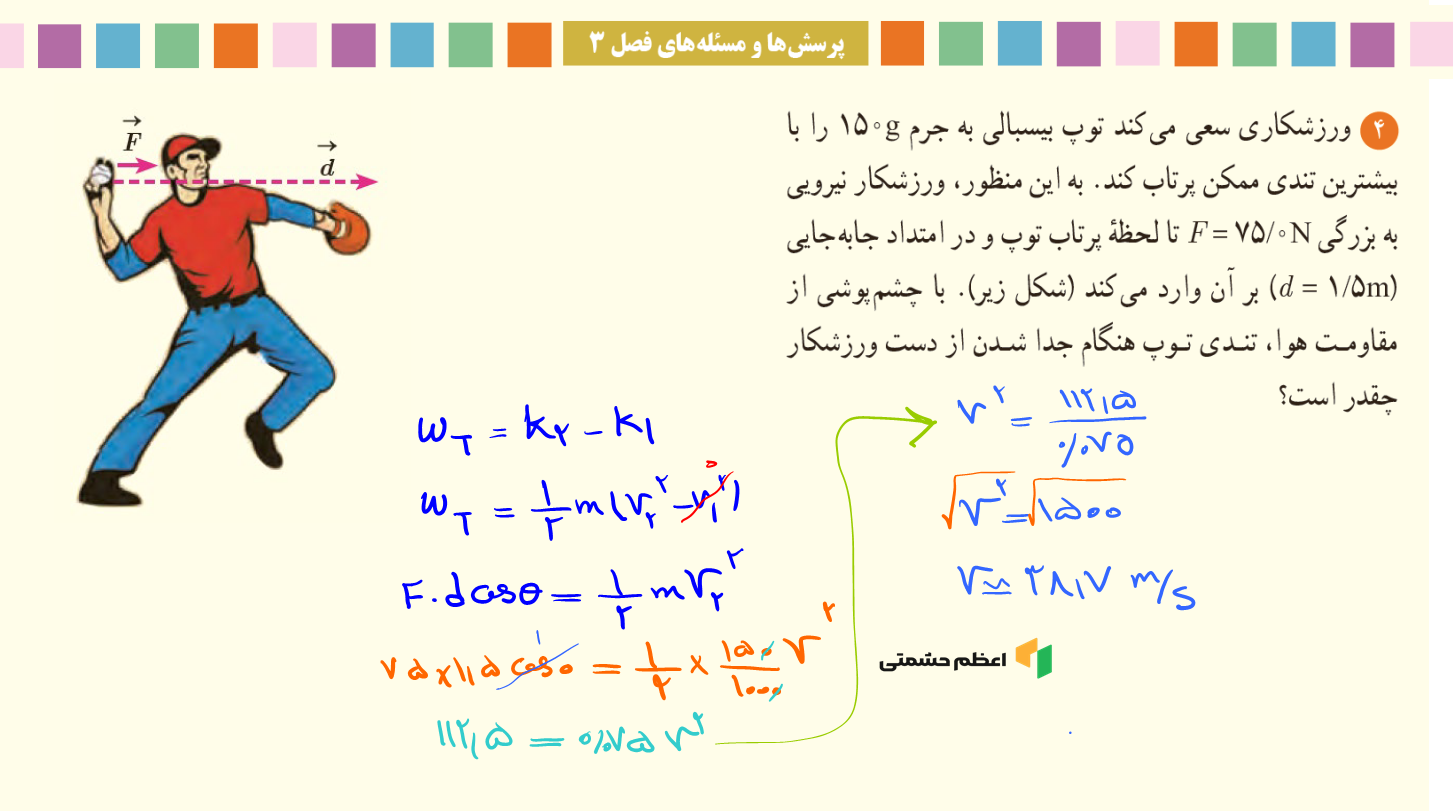 پرسش‌ها و مسئله‌های فصل ۳
۴ ورزشکاری سعی می‌کند توپ بیسبالی به جرم ۱۵۰g را با
بیشترین تندی ممکن پرتاب کند. به این منظور، ورزشکار نیرویی
به بزرگی F = ۷۵/۰N تا لحظهٔ پرتاب توپ و در امتداد جابه‌جایی
(d = ۱/۵m) بر آن وارد می‌کند (شکل زیر). با چشم‌پوشی از
مقاومت هوا، تندی توپ هنگام جدا شدن از دست ورزشکار
چقدر است؟
F⃗
d⃗
W_T = k₂ − k₁
W_T = ۱/۲ m (v₂² − v₁²) ۰
F . d cosθ = ۱/۲ m v₂²
۷۵ × ۱/۵ cos۰ = ۱/۲ × ۱۵۰/۱۰۰۰ v² ۱
۱۱۲/۵ = ۰/۰۷۵ v²
v² = ۱۱۲/۵ / ۰/۰۷۵
√v² = √۱۵۰۰
v ≃ ۳۸/۷ m/s
اعظم حشمتی